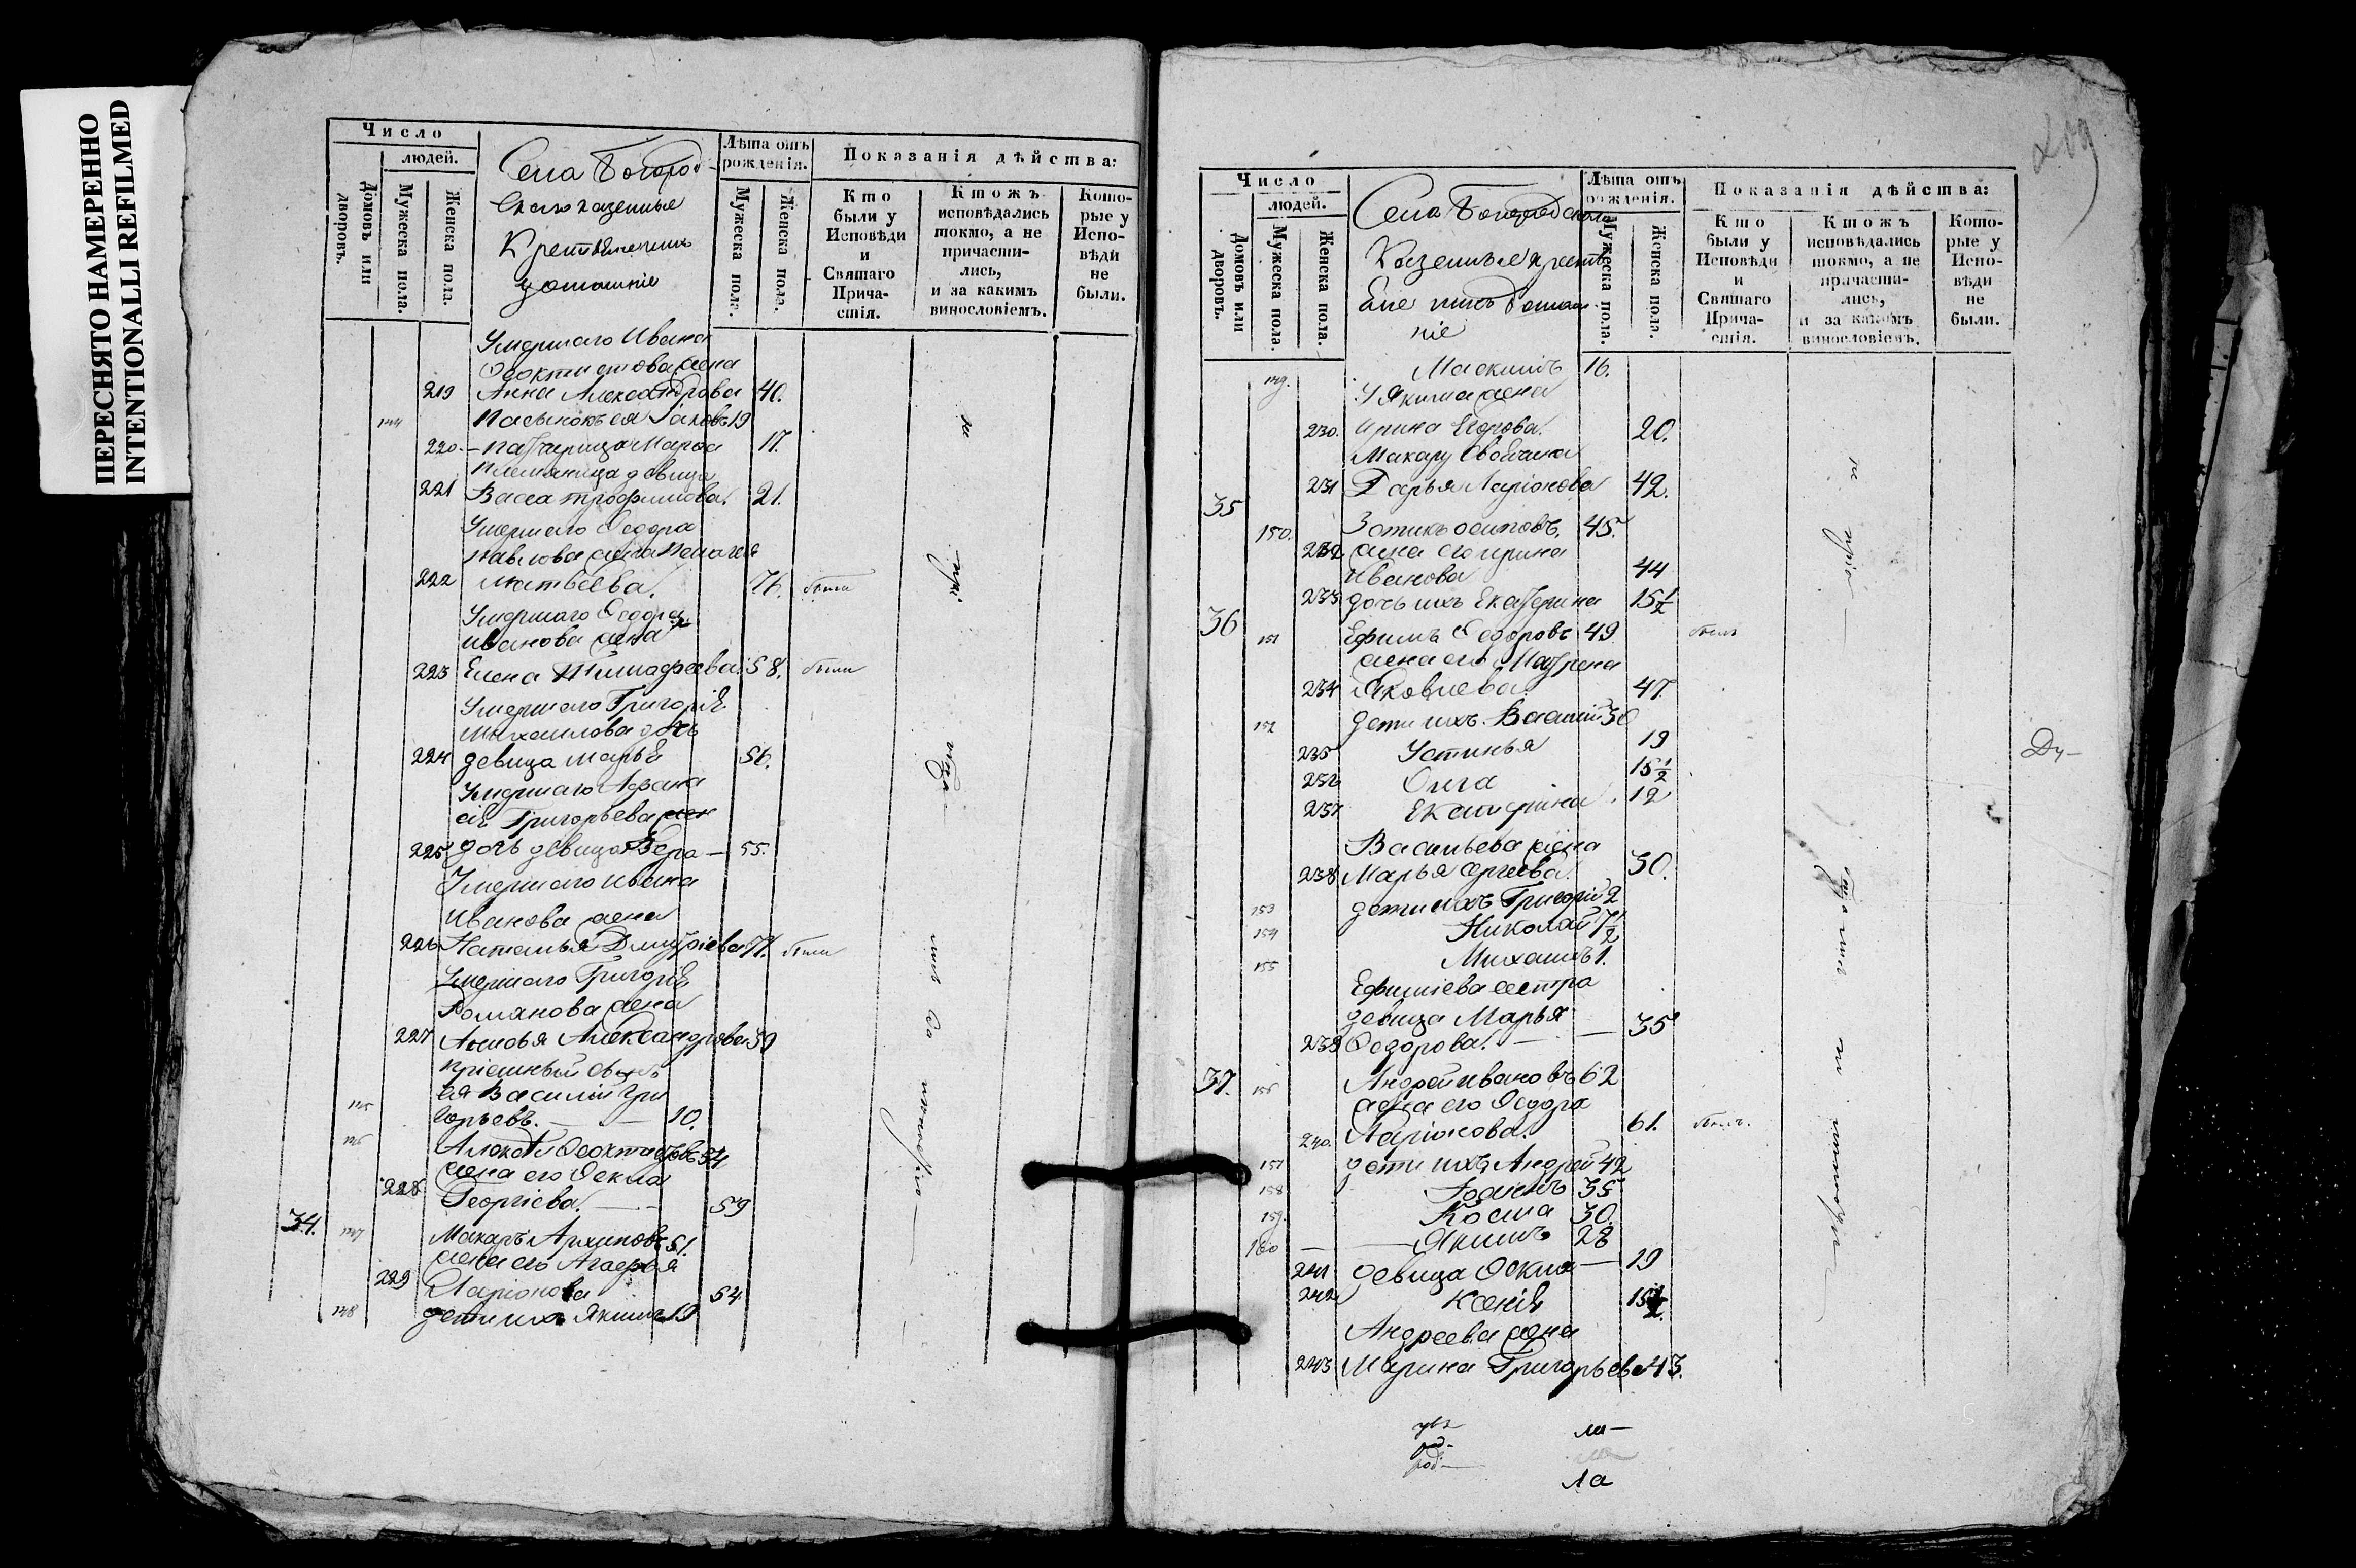 ПЕРЕСНЯТО НАМЕРЕННО
INTENTIONALLI REFILMED
Число
людей.
Домовъ или дворовъ.
Мужеска пола.
Женска пола.
Села Богород-
скаго казенные
Крестьяне и ихъ
домашніе
Лѣта отъ рожденія.
Мужеска пола.
Женска пола.
Показанія дѣйства:
Кто были у Исповѣди и Святаго Причастія.
Ктожъ исповѣдались токмо, а не причастились, и за какимъ винословіемъ.
Которые у Исповѣди не были.
Умершаго Ивана
Ѳеоктистова жена
219 Анна Александрова 40.
144 Пасынокъ ея Іаковъ 19
220. – падчерица Марѳа 17.
Племяница девица
221 Васса трофимова. 21.
Умершаго Ѳедора
павлова жена Пелагея
222 Матвеева. 76. были
Умершаго Ѳедора
иванова жена
223 Елена Тимофеева 58. были
Умершаго Григорія
Михаилова дочь
224 девица Марья 56.
Умершаго Афана
сія Григорьева
225 дочь девица Вера — 55.
Умершаго ивана
Иванова жена
226 Наталья Дмитріева 71. были
Умершаго Григорія
Романова жена
227 Александрова 39
пріемный сынъ
ея Василій Гри
145 горьевъ. — 10.
146 Алексей Ѳеоктистовъ 54
жена его Ѳекла
228 Георгіева. — 59
34. 147 Макаръ Архиповъ 51.
жена его Агафья
229 Ларіонова 54
148 дети ихъ Якимъ 19
209
Число
людей.
Домовъ или дворовъ.
Мужеска пола.
Женска пола.
Села Богородскаго
Казенные крестья
не и ихъ домаш
ніе
Лѣта отъ рожденія.
Мужеска пола.
Женска пола.
Показанія дѣйства:
Кто были у Исповѣди и Святаго Причастія.
Ктожъ исповѣдались токмо, а не причастились, и за какимъ винословіемъ.
Которые у Исповѣди не были.
149. Максимъ 16.
У Якима жена
230. Ирина Егорова. 20.
Макару
231 Дарья Ларіонова 42.
35
150. Зотикъ осиповъ. 45.
232 жена его ирина
Иванова 44
233 дочь ихъ Екатерина 15½
36 151 Ефимъ Ѳедоровъ 49 былъ
жена его Матрена
234 Яковлева. 47.
152 дети ихъ. Василій 30
235 Устинья 19
236 Олга 15½
237 Екатерина. 12
Васильева жена
238 Марья сергеева. 30.
153 дети ихъ Григорій 2
154 Николай 7½
155 Михаилъ 1.
Ефимiева сестра
девица Марья
239 Ѳедорова. — — 35
37. 156 Андрей ивановъ 62
жена его Ѳедора
240. Ларіонова. 61. былъ.
157 дети ихъ Андрей 42
158 35
159. Косма 30.
160 — — Якимъ 28
241 девица Ѳекла — 19
242 Ксенія 15½
Андреева жена
243 Марина Григорьева 43.
Ду—
ла